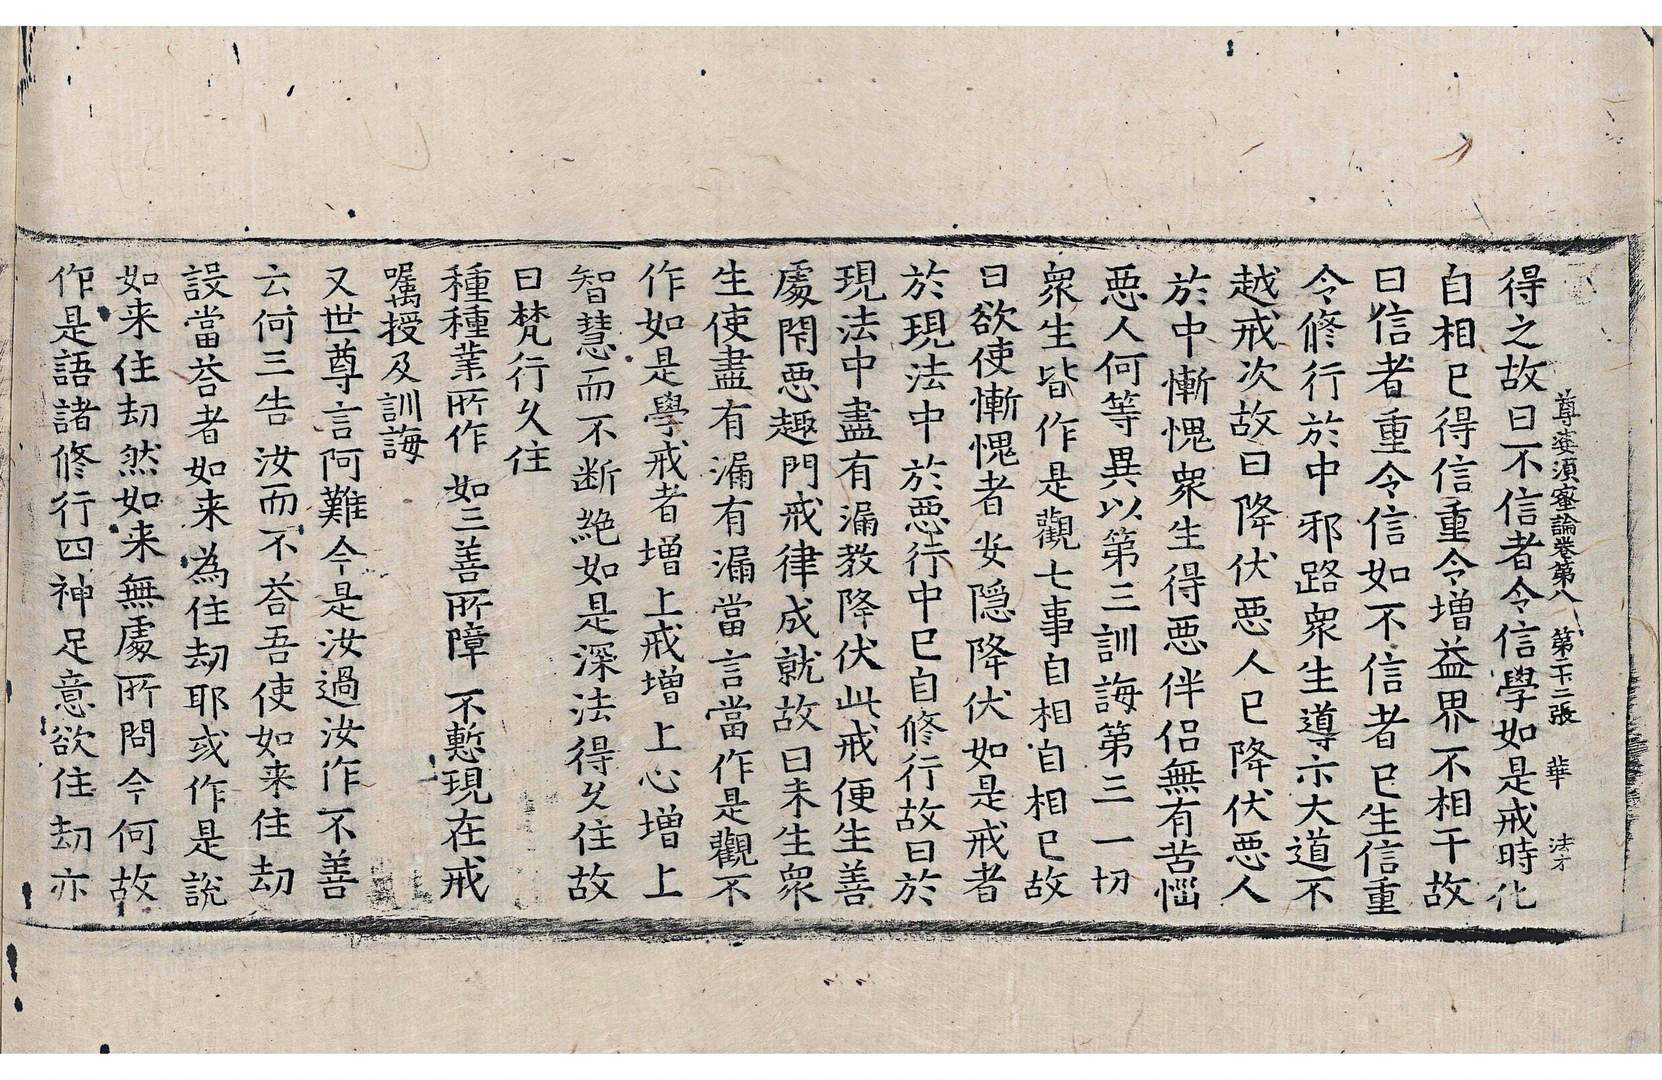 尊婆須蜜論卷第八　第二十二張　華　法才
得之故曰不信者令信學如是戒時化
自相已得信重令增益界不相干故
曰信者重令信如不信者已生信重
令修行於中邪路衆生導示大道不
越戒次故曰降伏惡人已降伏惡人
於中慚愧衆生得惡伴侶無有苦惱
惡人何等異以第三訓誨第三一切
衆生皆作是觀七事自相自相已故
曰欲使慚愧者安隱降伏如是戒者
於現法中於惡行中已自修行故曰於
現法中盡有漏教降伏此戒便生善
處閇惡趣門戒律成就故曰未生衆
生使盡有漏有漏當言當作是觀不
作如是學戒者增上戒增上心增上
智慧而不断絶如是深法得久住故
曰梵行久住
種種業所作　如三善所障　不慙現在戒
囑授及訓誨
又世尊言阿難今是汝過汝作不善
云何三告汝而不荅吾使如来住劫
設當荅者如来為住劫耶或作是説
如来住劫然如来無處所問今何故
作是語諸修行四神足意欲住劫亦